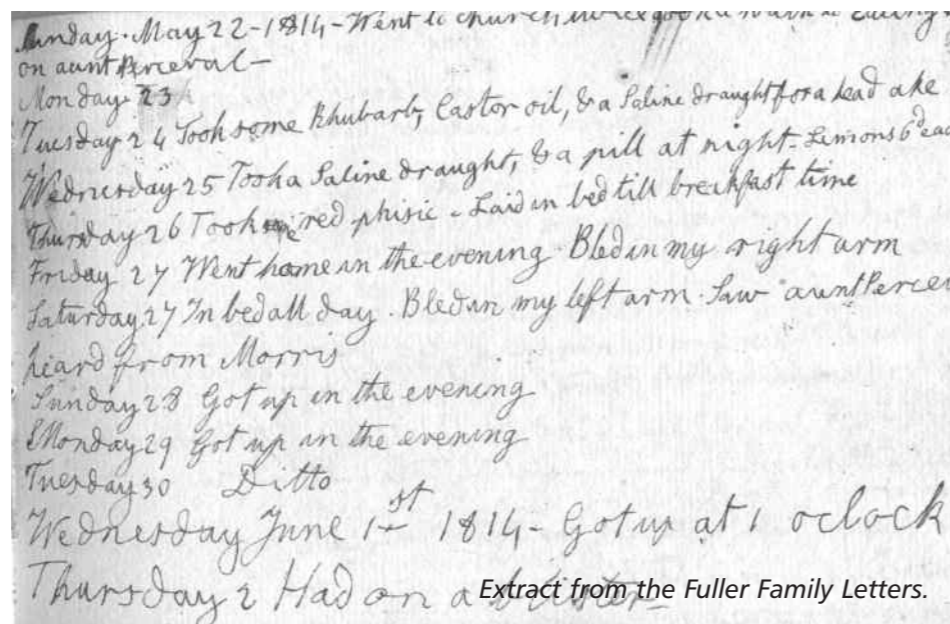 Sunday. May 22 - 1814 - Went to church twice took a walk to Ealing
on aunt Perceval -
Monday 23
Tuesday 24 Took some Rhubarb, Castor oil, & a Saline draught for a head ake
Wednesday 25 Took a Saline draught, & a pill at night - Lemons 6d each
Thursday 26 Took red phisic - Laid in bed till breakfast time
Friday 27 Went home in the evening Bled in my right arm
Saturday 27 In bed all day. Bled in my left arm. Saw aunt Percev
heard from Morris
Sunday 28 Got up in the evening
Monday 29 Got up in the evening
Tuesday 30 Ditto
Wednesday June 1st 1814 - Got up at 1 oclock
Thursday 2 Had on a blister -
Extract from the Fuller Family Letters.